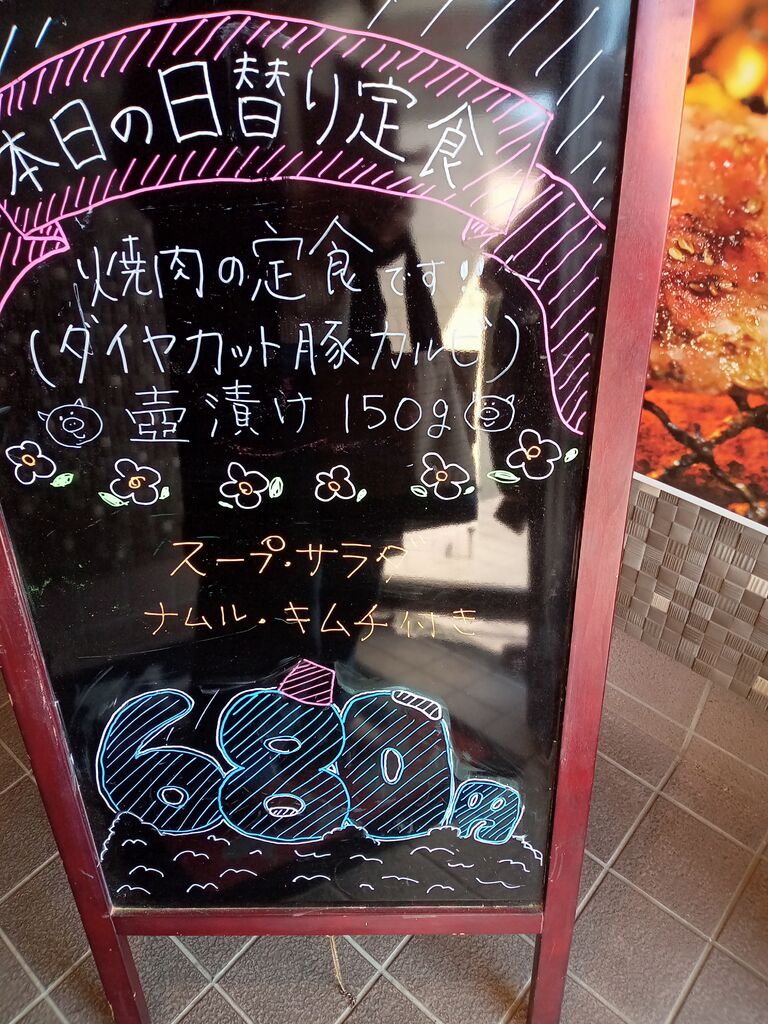 本日の日替り定食
焼肉の定食です!!
(ダイヤカット豚カルビ)
壺漬け 150g
スープ・サラダ
ナムル・キムチ付き
680円